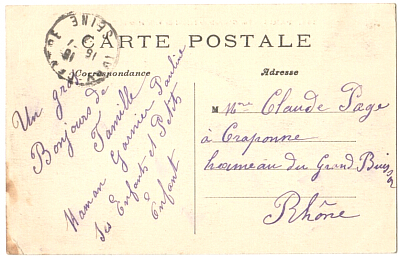 CARTE POSTALE
Correspondance
Adresse
Un gros
Bonjours de
Famille
Maman Garnier Pauline
Ses Enfants et Petits
Enfant
M Mme Claude Page
à Craponne
hameau du Grand Buisson
Rhône
SEINE